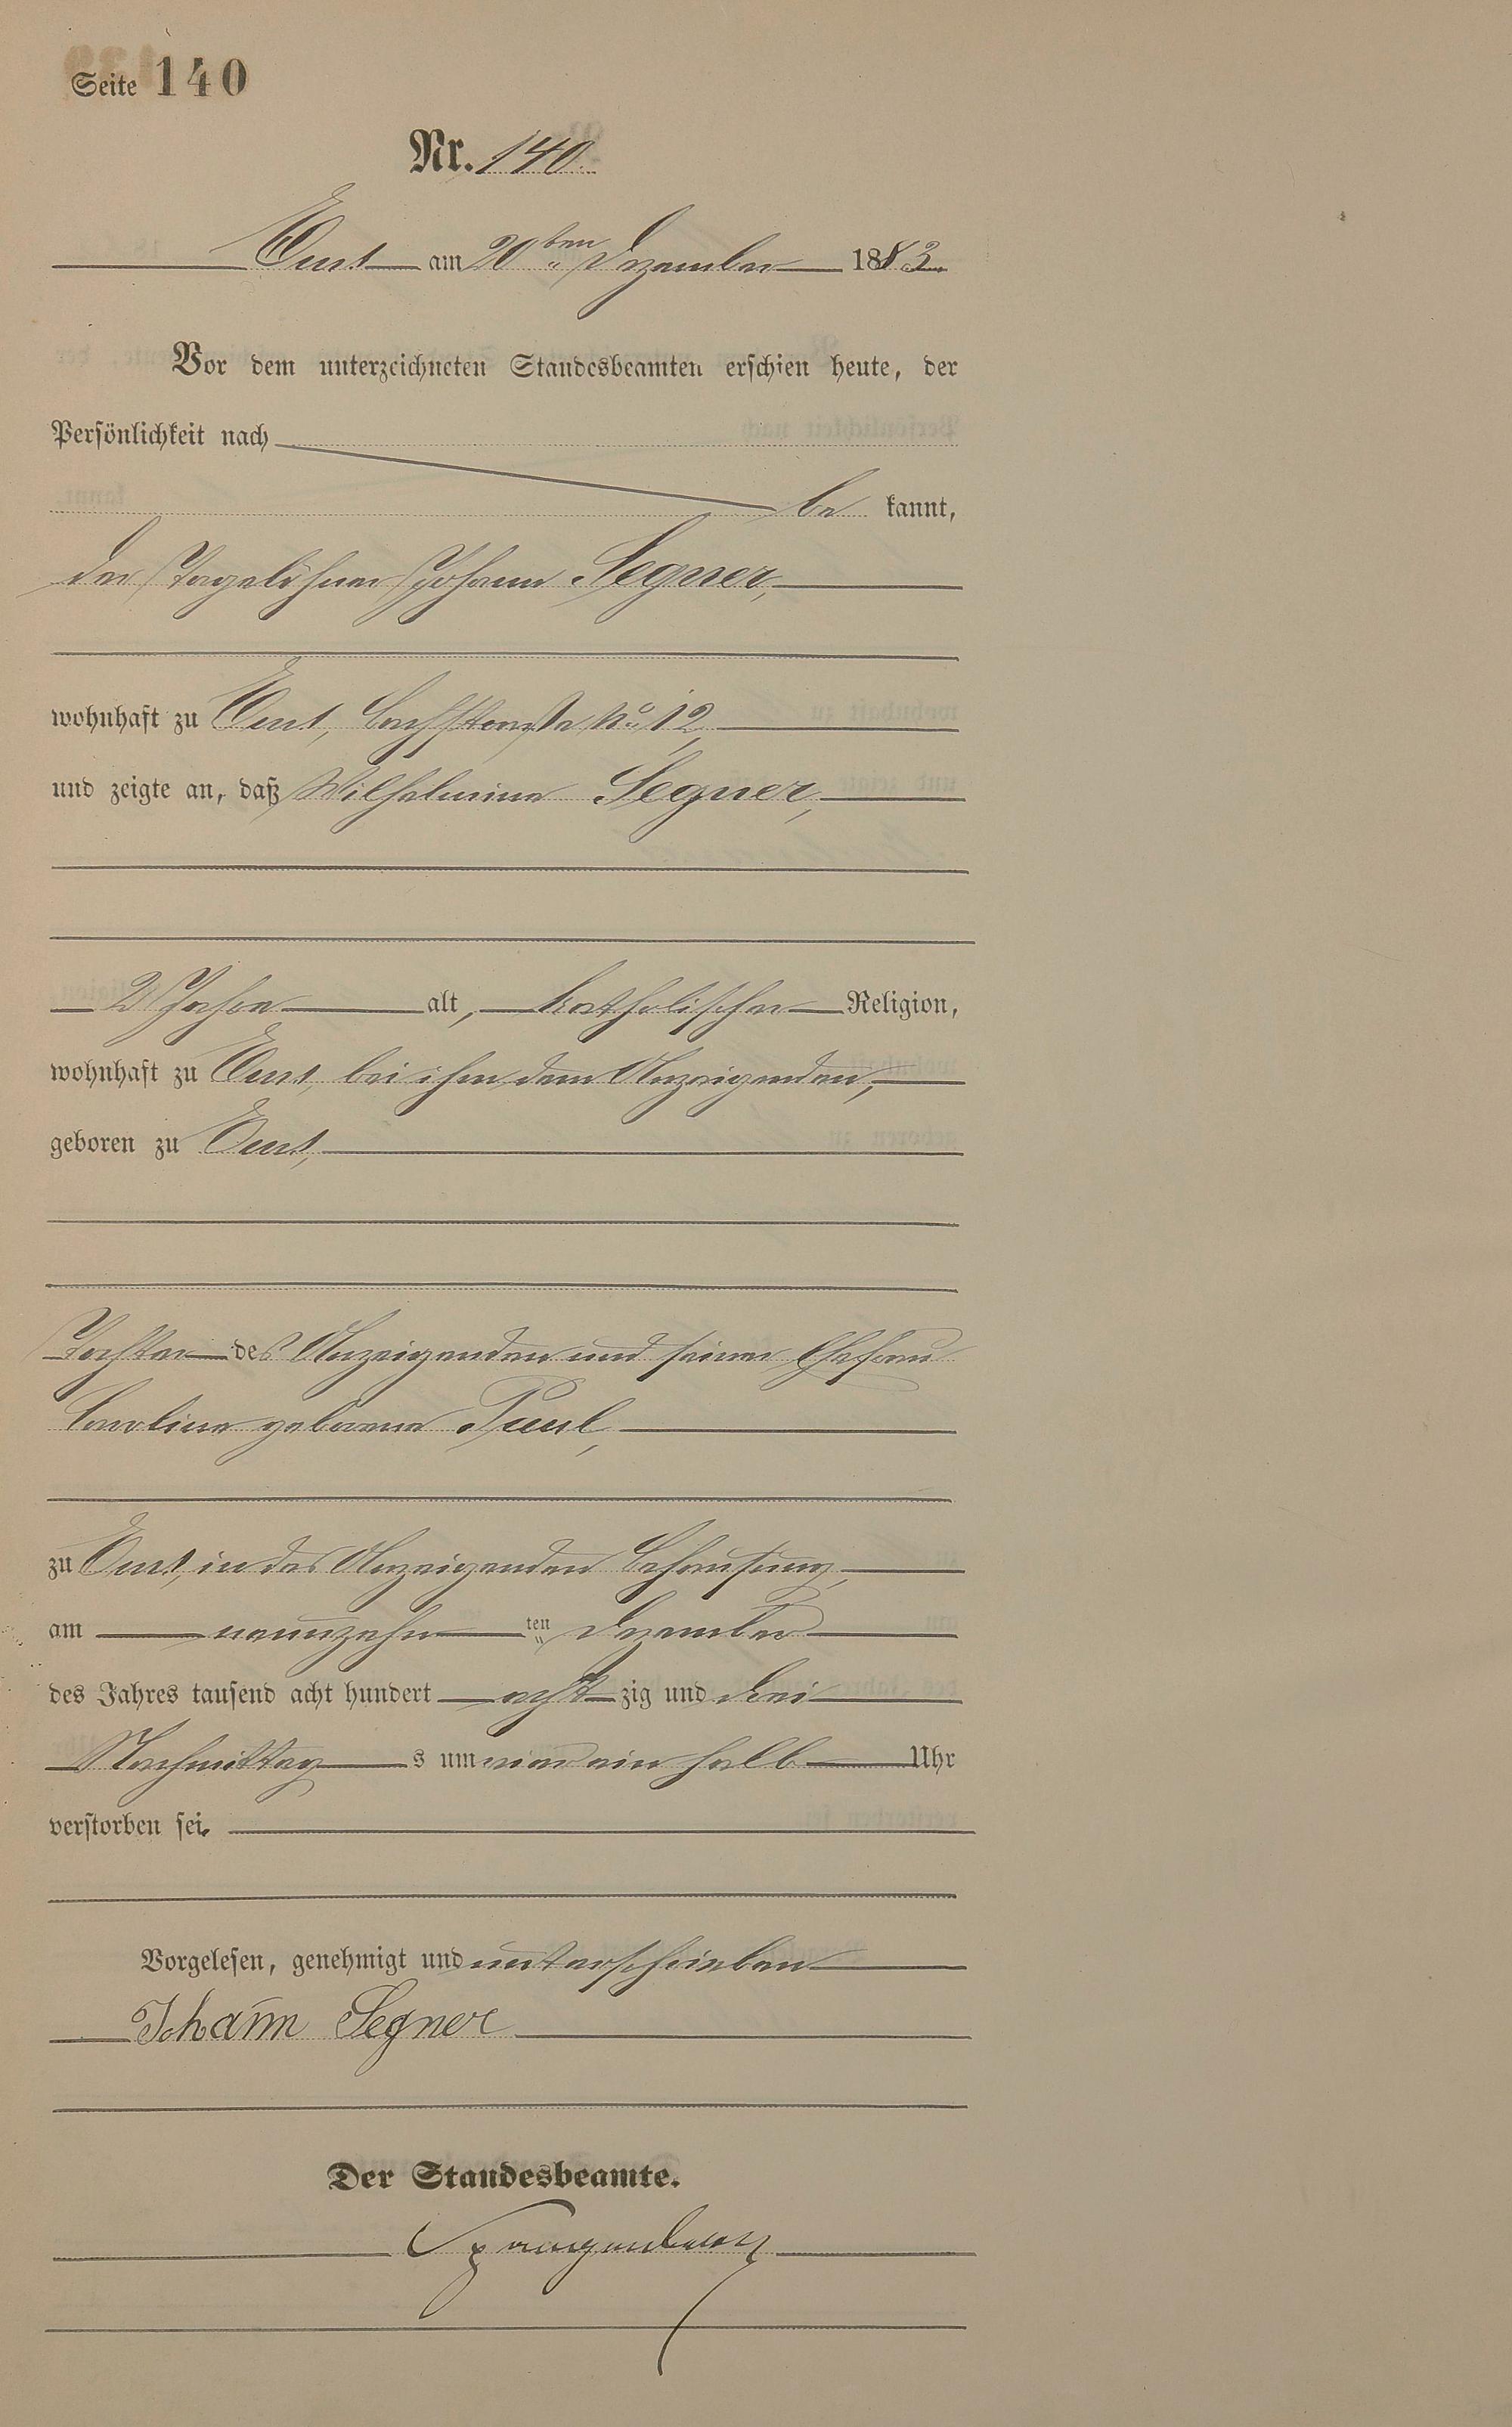 Seite 140
Nr. 140.
Ems am 20ten Dezember 1883.
Vor dem unterzeichneten Standesbeamten erschien heute, der
Persönlichkeit nach
be kannt,
der Tagelöhner Johann Segner,
wohnhaft zu Ems, Bachstraße No 12,
und zeigte an, daß Wilhelmine Segner,
2 Jahre alt, katholischer Religion,
wohnhaft zu Ems, bei ihm dem Anzeigenden,
geboren zu Ems,
Tochter des Anzeigenden und seiner Ehefrau
Caroline geborene Paul,
zu Ems, in des Anzeigenden Behausung,
am neunzehn ten Dezember
des Jahres tausend acht hundert acht zig und drei
Nachmittag s um vier ein halb Uhr
verstorben sei.
Vorgelesen, genehmigt und unterschrieben
Johann Segner
Der Standesbeamte.
Spangenberg